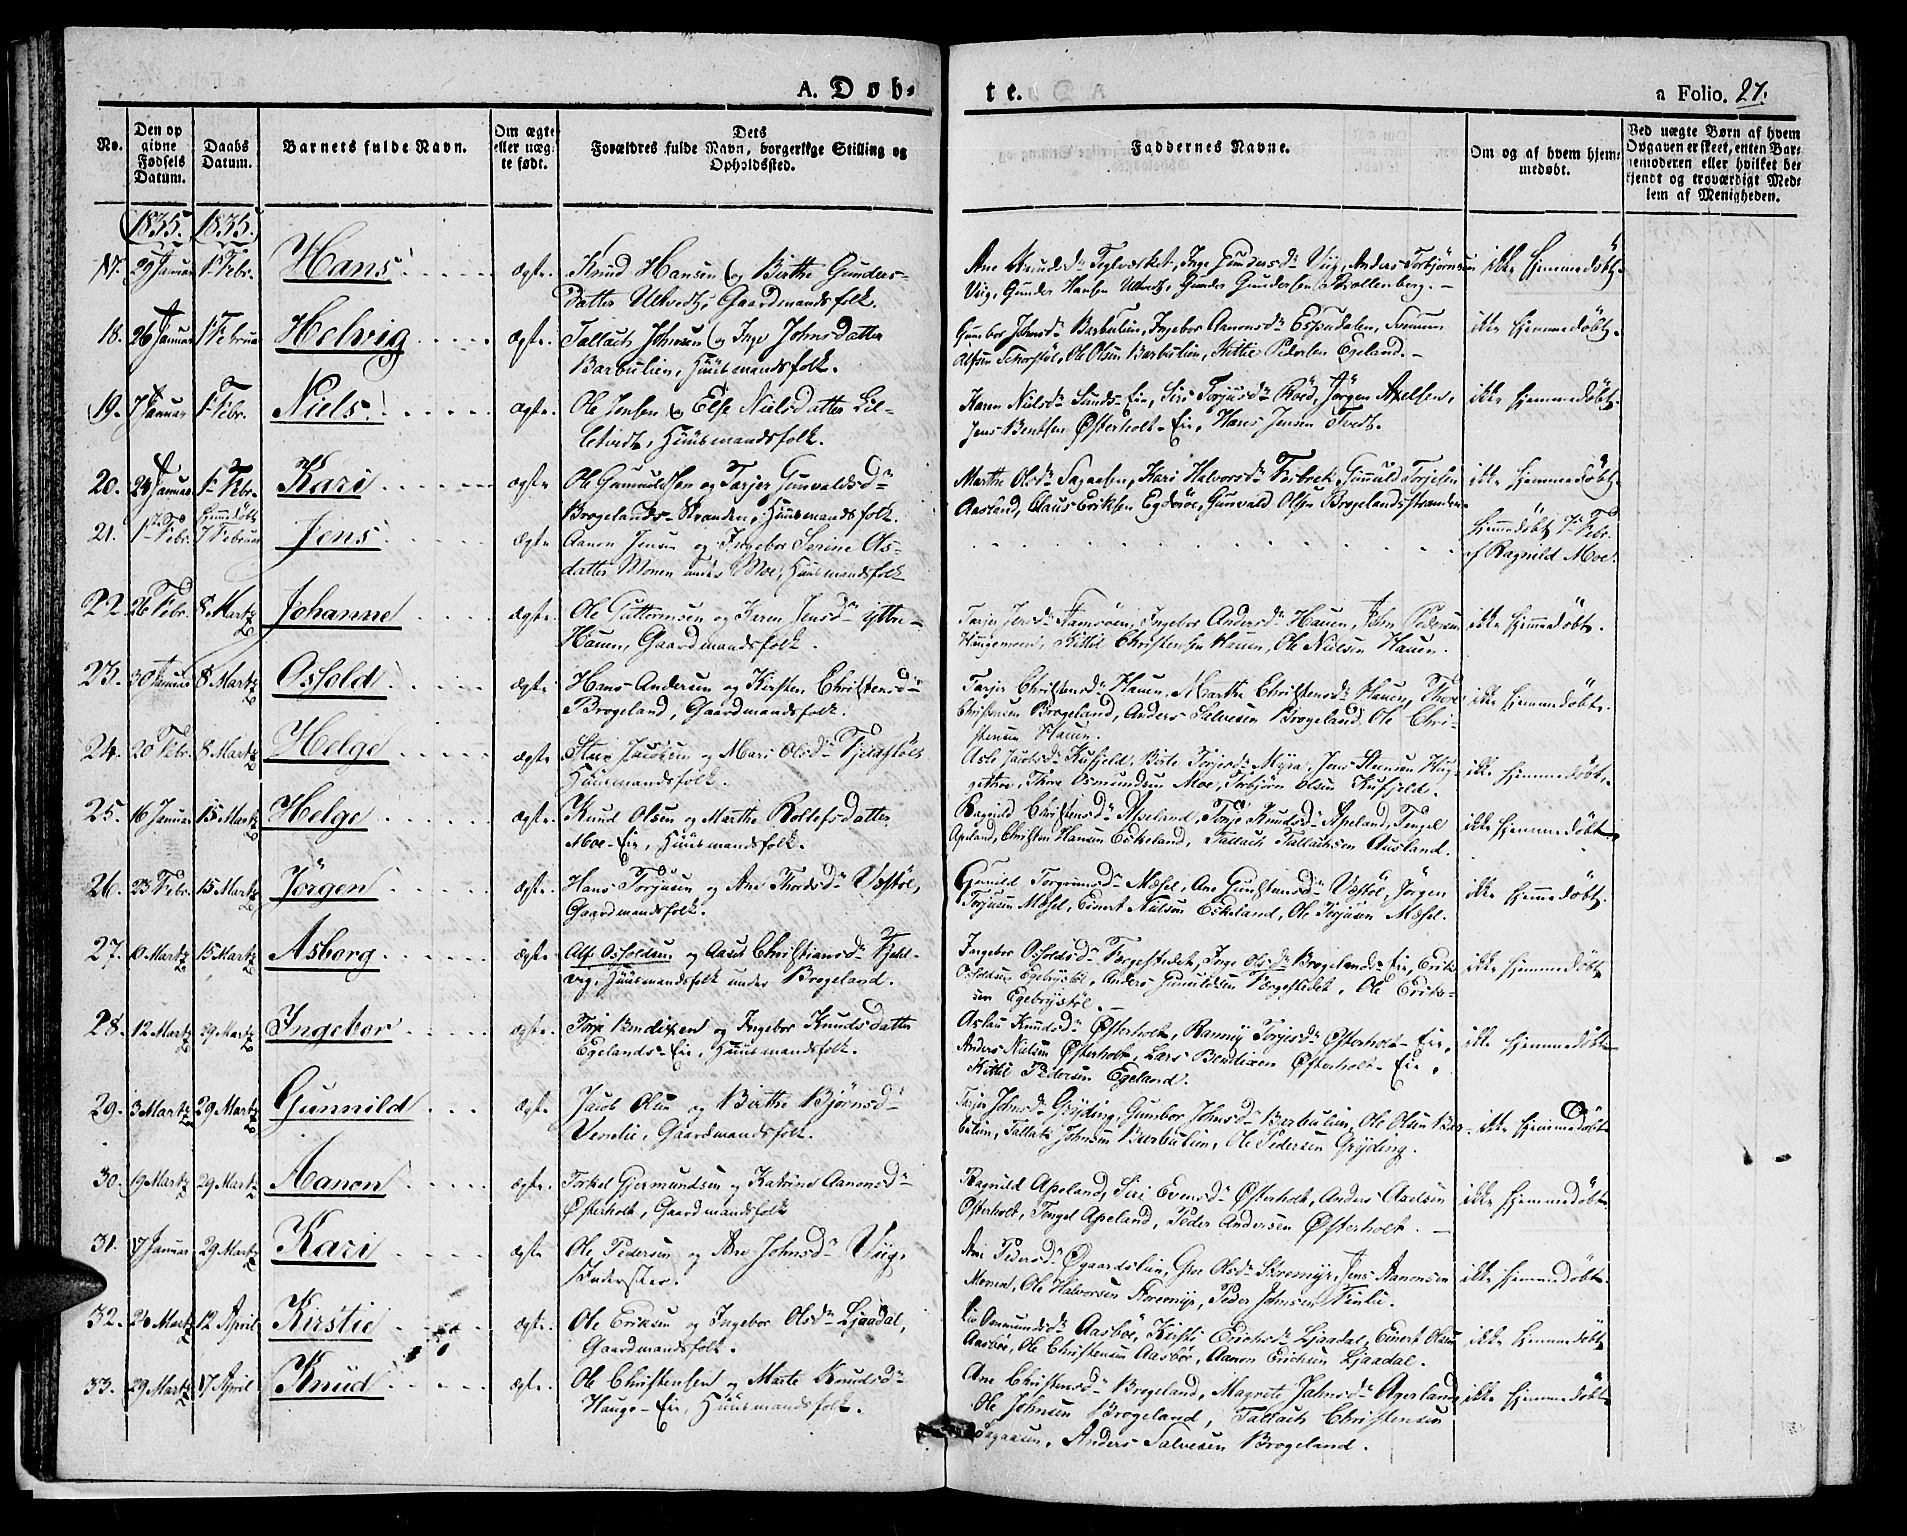 A. Døb-
te.
a Folio. 27.
No.
Den op
givne
Fødsels
Datum.
Daabs
Datum.
Barnets fulde Navn.
Om ægte
eller uæg-
te født.
Dets
Forældres fulde Navn, borgerlige Stilling og
Opholdssted.
Faddernes Navne.
Om og af hvem hjem-
medøbt.
Ved uægte Børn af hvem
Opgaven er skeet, enten Bar-
nemoderen eller hvilket be-
kjendt og troværdigt Med-
lem af Menigheden.
1835. 1835.
17. 29 Januar 1 Febr. Hans ægte Knud Hansen og Birthe Gunders-
datter Gaardmandsfolk.
Ane Knudsd. Teglværket, Inge Gundersd. Viig, Anders Torbjørnsen
Viig, Gunder Hansen Gunder Gundersen
ikke hjemmedøbt.
18. 26 Januar 1 Februar Helvig ægte Tallach Johnsen og Inge Johnsdatter
Barbulien, Huusmandsfolk.
Gunbor Johnsd. Barbulien, Ingebor Aanonsd. Espedalen,
Ole Olsen Barbulien, Kittil Pedersen Egeland.
ikke hjemmedøbt.
19. 7 Januar 1 Febr. Niels ægte Ole Jensen og Else Nielsdatter Lil-
letvedt, Huusmandsfolk.
Karen Nielsd. Sunds-Eie, Siri Torjusd. Jörgen Axelsen,
Jens Bentsen Østerholt-Eie, Hans Jensen Tvedt.
ikke hjemmedøbt.
20. 24 Januar 1 Febr. Kari ægte Ole Gunnuldsen og Tarjer Gunvaldsd.
Brogelands-Stranden, Huusmandsfolk.
Marthe Olsd. Sagaasen, Kari Halvorsd. Gunnuld Torjesen
Aasland, Claus Eriksen Egderöe, Gunvald Olsen Brogelandsstranden.
ikke hjemmedøbt.
21. 1 Febr. hjemmedøbt 7 Februar Jens ægte Aanon Jensen og Ingebor Serine Ols-
datter Monen under Moe, Huusmandsfolk
hjemmedøbt 7 Febr.
af Ragnild Moe.
22. 26 Febr. 8 Martz Johanne ægte Ole Guttormsen og Karen Jensd. yttre-
Hauen, Gaardmandsfolk.
Tarjer Jensd. Ingebor Andersd. Hauen, John Pedersen
Haugemoen, Kittil Christensen Hauen, Ole Nielsen Hauen.
ikke hjemmedøbt.
23. 30 Januar 8 Martz Osfold ægte Hans Andersen og Kirsten Christensd.
Brogeland, Gaardmandsfolk.
Tarjer Christensd. Hauen, Marthe Christensd. Hauen, Thore
Christensen Brogeland, Anders Salvesen Brogeland, Ole Chri-
stensen Hauen.
ikke hjemmedøbt.
24. 20 Febr. 8 Martz Helge ægte Jacobsen og Mari Olsd.
Huusmandsfolk.
Jacobsd. Kufjeld, Birte Torjusd. Myra, Jens
Thore Osmundsen Moe, Torbjörn Olsen Kufjeld.
ikke hjemmedøbt.
25. 16 Januar 15 Martz Helge ægte Knud Olsen og Marthe Rollefsdatter
Moe-Eie, Huusmandsfolk.
Ragnild Christensd. Apeland, Torje Knudsd. Apeland, Tengel
Apeland, Christen Hansen Eskeland, Tallach Tallachsen Ausland.
ikke hjemmedøbt.
26. 23 Febr. 15 Martz Jörgen ægte Hans Torjusen og Ane Thordsd. Væstöl,
Gaardmandsfolk.
Gunild Torgrimsd. Mæsel, Ane Væstöl, Jörgen
Torjusen Mæsel, Einert Nielsen Eskeland, Ole Torjusen Mæsel.
ikke hjemmedøbt.
27. Martz 15 Martz Asborg ægte Alf Osfoldsen og Aase Christiansd.
Huusmandsfolk under Brogeland.
Ingebor Osfoldsd. Inge Olsd. Brogelands-Eie, Erik
Osfoldsen Egebrystöl, Anders Gunnildsen Ole Erik-
sen Egebrystöl.
ikke hjemmedøbt
28. 12 Martz 29 Martz Ingebor ægte Torje Bendixen og Ingebor Knudsdatter
Egelands-Eie, Huusmandsfolk.
Aslau Knudsd. Østerholt, Ranney Torjesd. Østerholt-Eie,
Anders Nielsen Østerholt, Lars Bendixen Østerholt-Eie,
Kittil Pedersen Egeland.
ikke hjemmedøbt
29. 3 Martz 29 Martz Gunnild ægte Jacob Olsen og Birthe Bjørnsd.
Venelie, Gaardmandsfolk.
Tarjer Johnsd. Gryting, Gunbor Johnsd. Barbulien, Ole Olsen Bar-
bulien, Tallak Johnsen Barbulien, Ole Pedersen Gryding.
ikke hjemmedøbt
30. 19 Martz 29 Martz Aanon ægte Torkel Gjermundsen og Katrine Aanonsd.
Østerholt, Gaardmandsfolk
Ragnild Apeland, Siri Evensd. Østerholt, Anders Axelsen
Østerholt, Tengel Apeland, Peder Andersen Østerholt.
ikke hjemmedøbt
31. 17 Januar 29 Martz Kari ægte Ole Pedersen og Ane Johnsd. Viig,
Inderster.
Ane Pedersd. Øgaardslien, Olsd. Storemyr, Jens Aanonsen
Monen, Ole Halvorsen Storemyr, Peder Johnsen
ikke hjemmedøbt
32. 26 Martz 12 April Kirstie ægte Ole Eriksen og Ingebor Olsd. Ljaadal,
Gaardmandsfolk.
Liv Osmundsd. Aasböe, Kirsti Erichsd. Ljaadal, Einert Olsen
Aasböe, Ole Christensen Aasböe, Aanon Erichsen Ljaadal.
ikke hjemmedøbt
33. 29 Martz 17 April Knud ægte Ole Christensen og Marte Knudsd.
Hauge-Eie, Huusmandsfolk.
Ane Christensd. Brogeland, Magrete Johnsd. Ageland,
Ole Johnsen Brogeland, Tallach Christensen
Sagaasen, Anders Salvesen Brogeland.
ikke hjemmedøbt